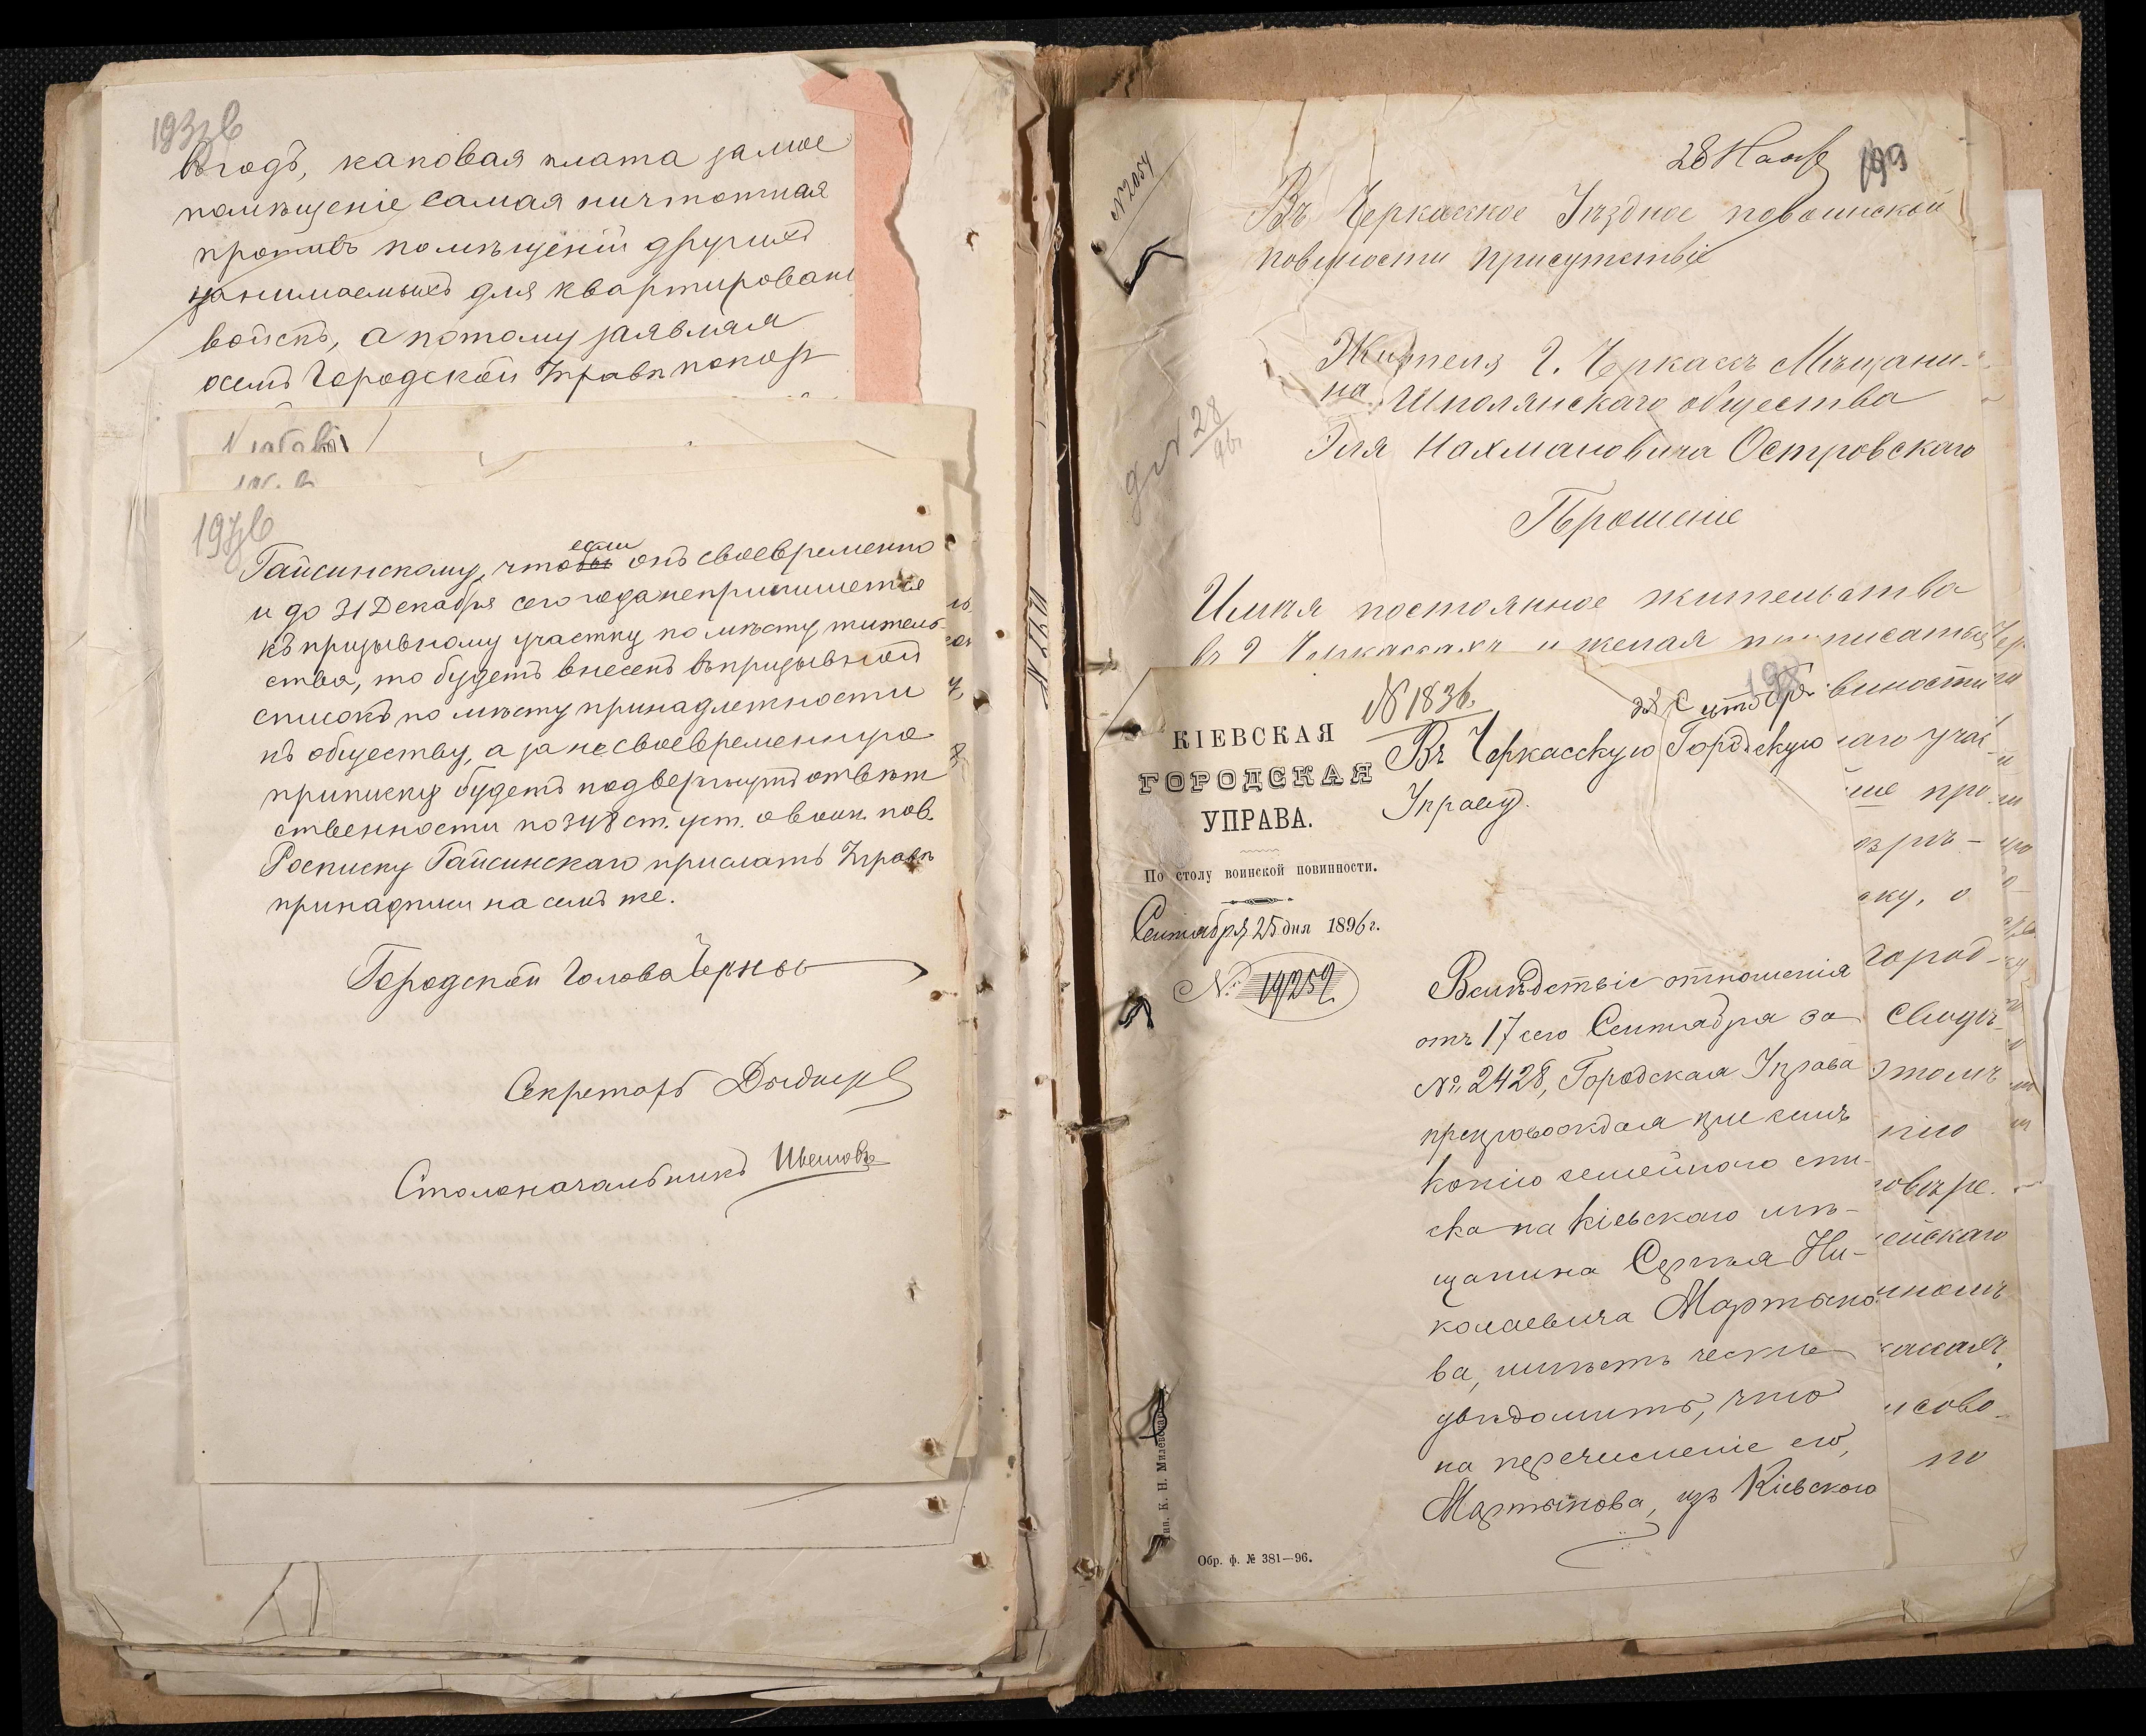 193 зв
въ годъ, каковая плата за мое
помѣщеніе самая ничтожная
противъ помѣщеній другихъ
занимаемыхъ для квартировані
войскъ, а потому заявляя
осемъ Городской Управѣ покор
197 зв
Гайсинскому, чтобы если онъ своевременно
и до 31 Декабря сего года не припишется
къ призывному участку по мѣсту житель-
ства, то будетъ внесенъ въ призывной
списокъ по мѣсту принадлежности
къ обществу, а за несвоевременную
приписку будетъ подвергнутъ отвѣт
ственности по 348 ст. уст. о воин. пов.
Росписку Гайсинскаго прислать Управѣ
принадписи на семъ же.
Городской Голова
Секретарь
Столоначальникъ
№ 2054
28 Нояб
199
Въ Черкасское Уѣздное по воинской
повинности присутствіе
28
96
Жителя г. Черкассъ Мѣщани-
на Шполянскаго общества
Эля Нахмановича Островскаго
Прошеніе
Имѣя постоянное жительство
въ г Черкассахъ и желая приписаться
198
№ 1836.
КІЕВСКАЯ
ГОРОДСКАЯ
УПРАВА.
По столу воинской повинности.
Сентября 25 дня 1896 г.
№ 19252
Въ Черкасскую Городскую
Управу.
Вслѣдствіе отношенія
отъ 17 сего Сентября за
№ 2428, Городская Управа
препровождая при семъ
копію семейного спи-
ска на кіевскаго мѣ-
щанина Сергѣя Ни-
колаевича Мартыно-
ва, имѣетъ честь
увѣдомить, что
на перечисленіе его,
Мартынова, изъ Кіевскаго
Тип. К. Н. Милевскаго
Обр. ф. № 381—96.
винности
аго учас
ше про
ку, о
город-
свидѣ
этомъ
нію
повѣре.
ейскаго
по